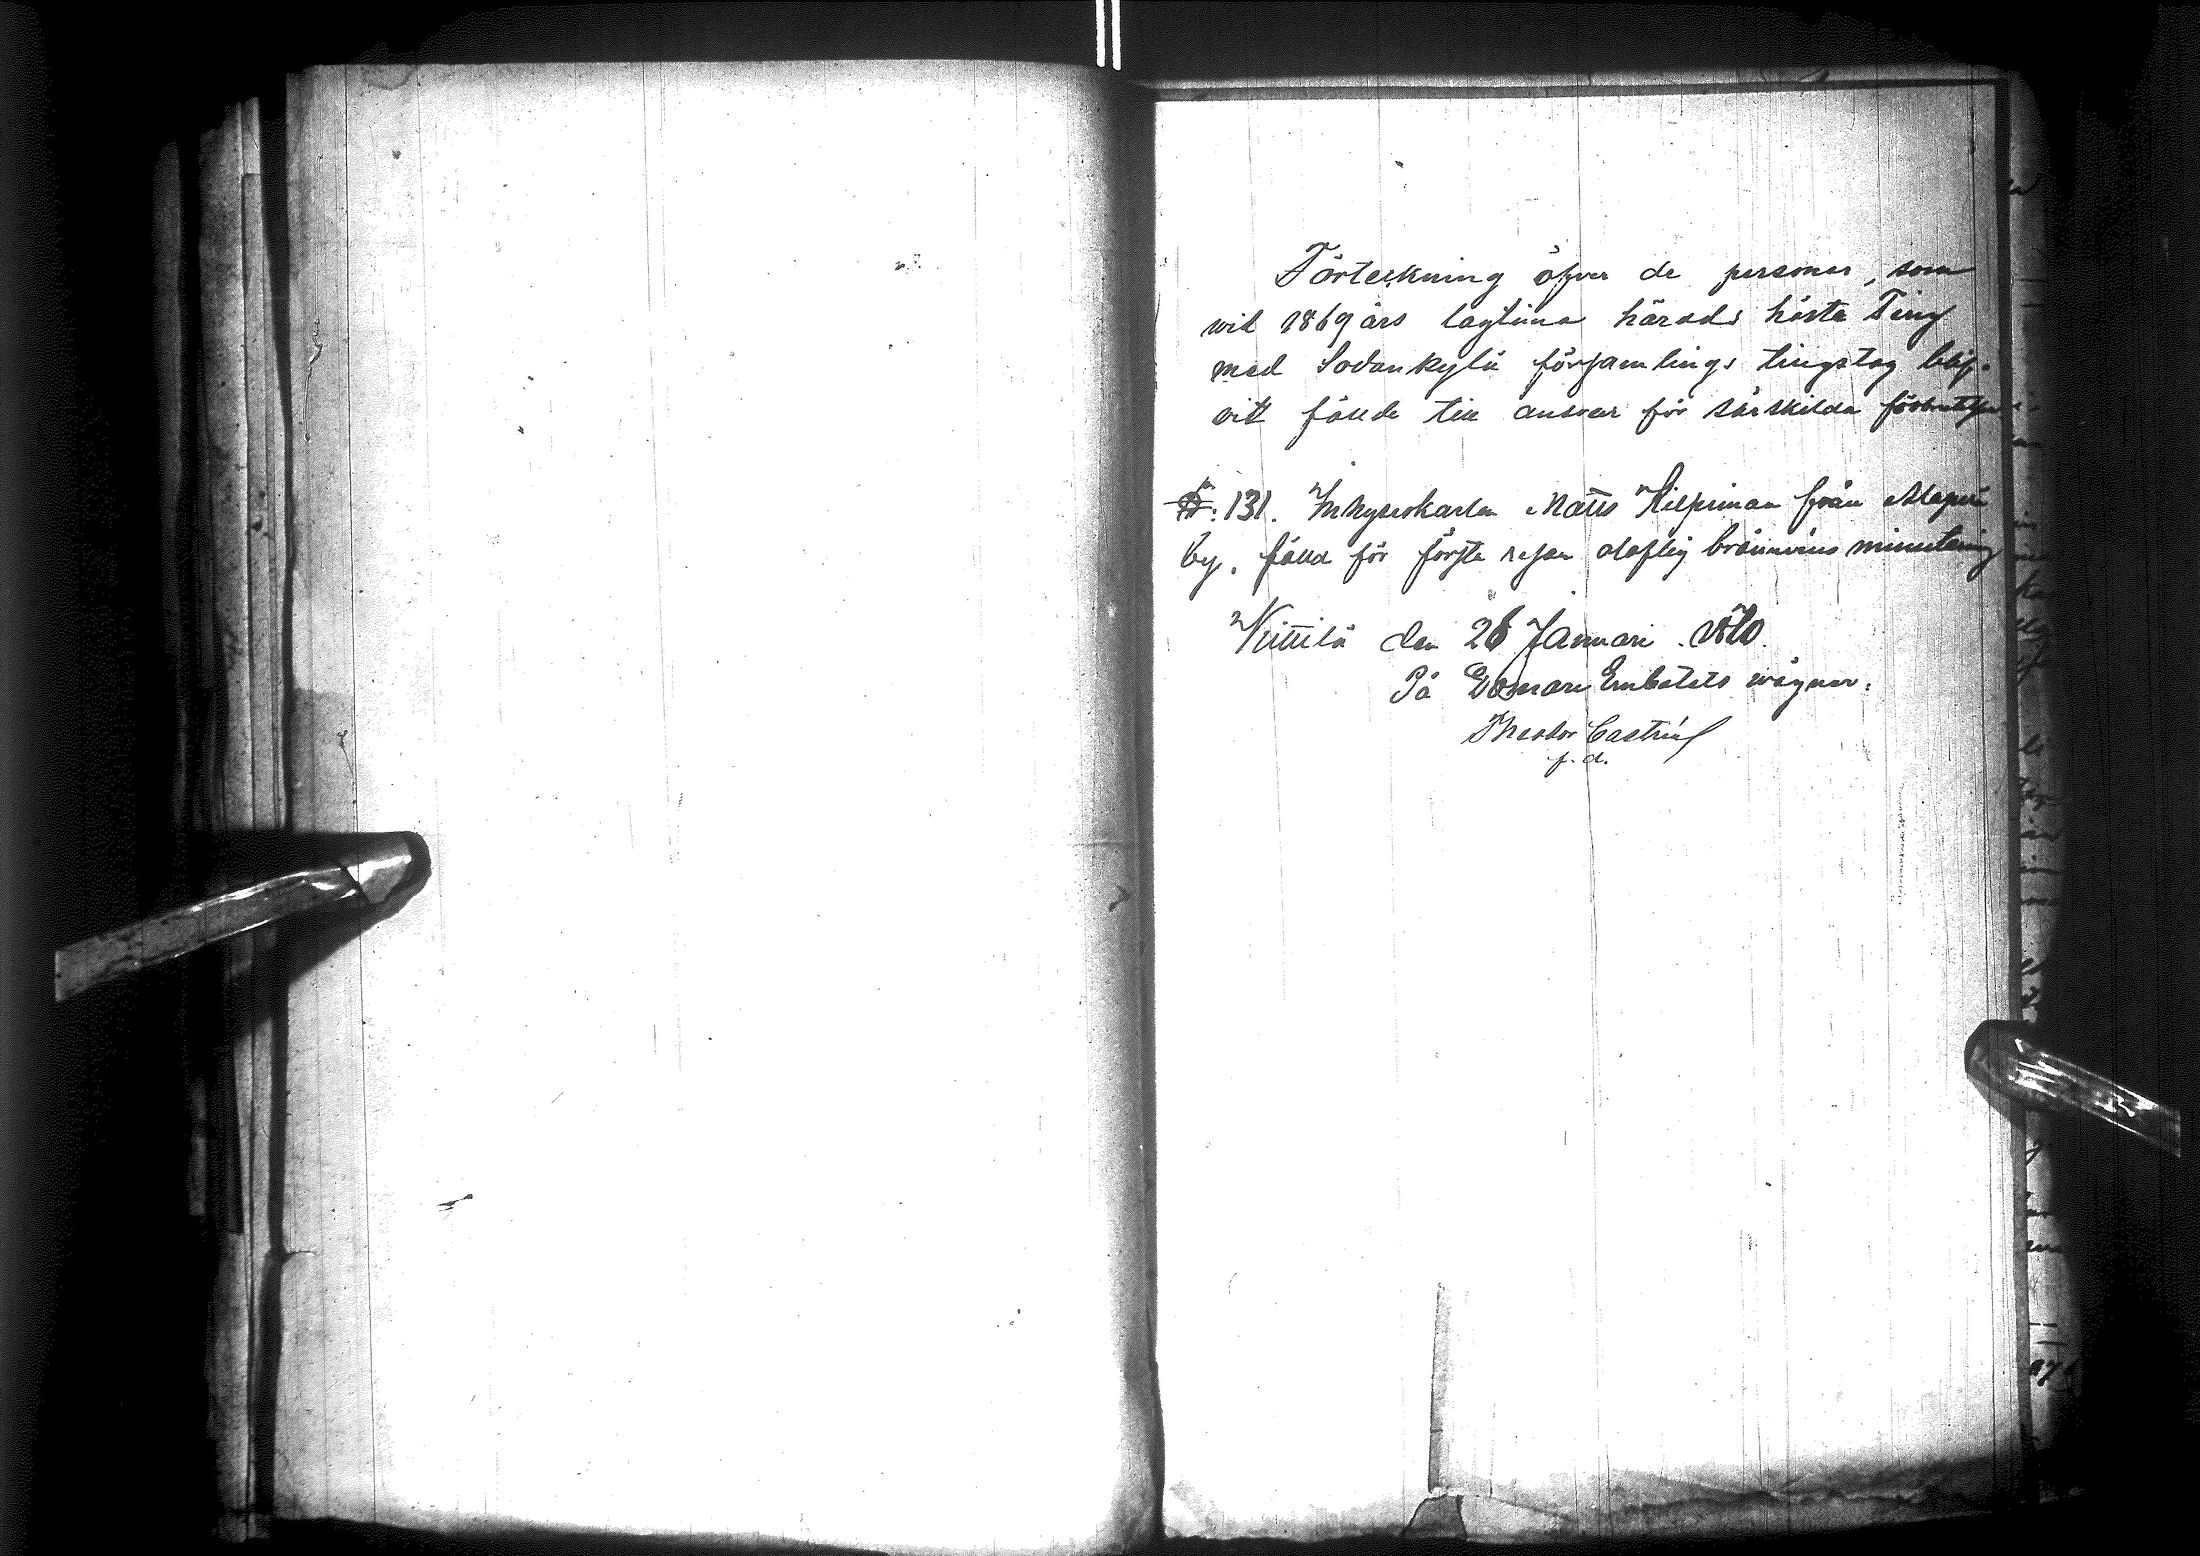 Förteckning öfver de personer, som
wid 1869 års lagtima härads höste Ting
med Sodankylä församlings tingslag blif-
vitt fällde till ansvar för särskilda förbrytelser.
§: 131. Inhyseskarlen Matts Hilpiman från Alaperä
by, fälld för första resan olaflig brännvins minutering
Kittilä den 26 Januari 1870.
På Domare Embetets wägnar:
Theodor Castrén
f. d.